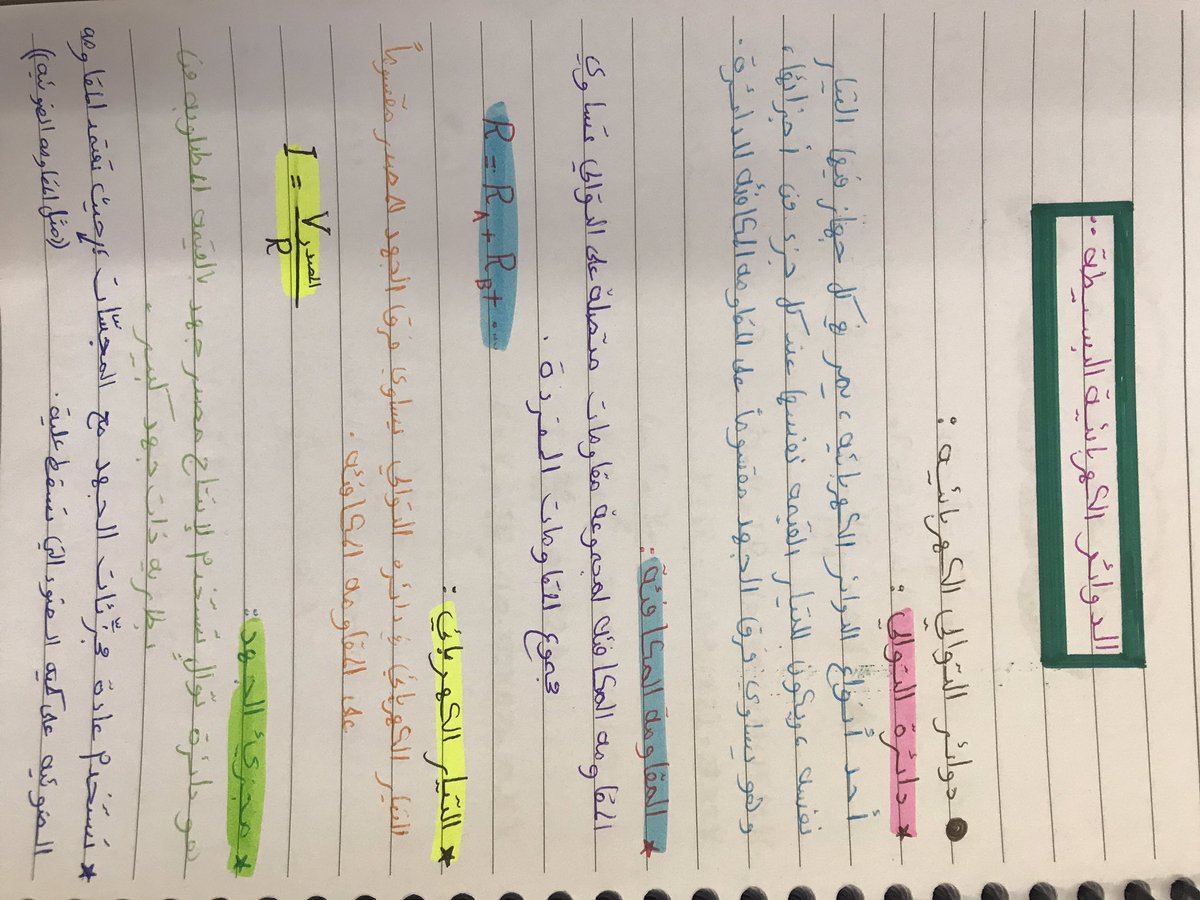 الدوائر الكهربائية البسيطة..
● دوائر التوالي الكهربائيه :
★ دائرة التوالي :
أحد أنواع الدوائر الكهربائيه، يمر في كل جهاز فيها التيار
نفسه، ويكون للتيار القيمه نفسها عند كل جزء من أجزائها،
وهو يساوي فرق الجهد مقسوماً على المقاومه المكافئه للدائرة.
★ المقاومة المكافئة :
المقاومه المكافئه لمجموعة مقاومات متصلة على التوالي تساوي
مجموع المقاومات المفردة .
R = R_A + R_B + ....
★ التيار الكهربائي :
التيار الكهربائي في دائره التوالي يساوي فرق الجهد للمصدر مقسوماً
على المقاومه المكافئه .
I = V المصدر / R
★ مجزئ الجهد :
هو دائرة توالٍ تستخدم لإنتاج مصدر جهد بالقيمه المطلوبه من
بطارية ذات جهد كبير .
★ تستخدم عادة مجزئات الجهد مع المجسّات حيث تعتمد المقاومه
الضوئيه على كمية الضوء التي تسقط عليه . ((مثل المقاومه الضوئيه))